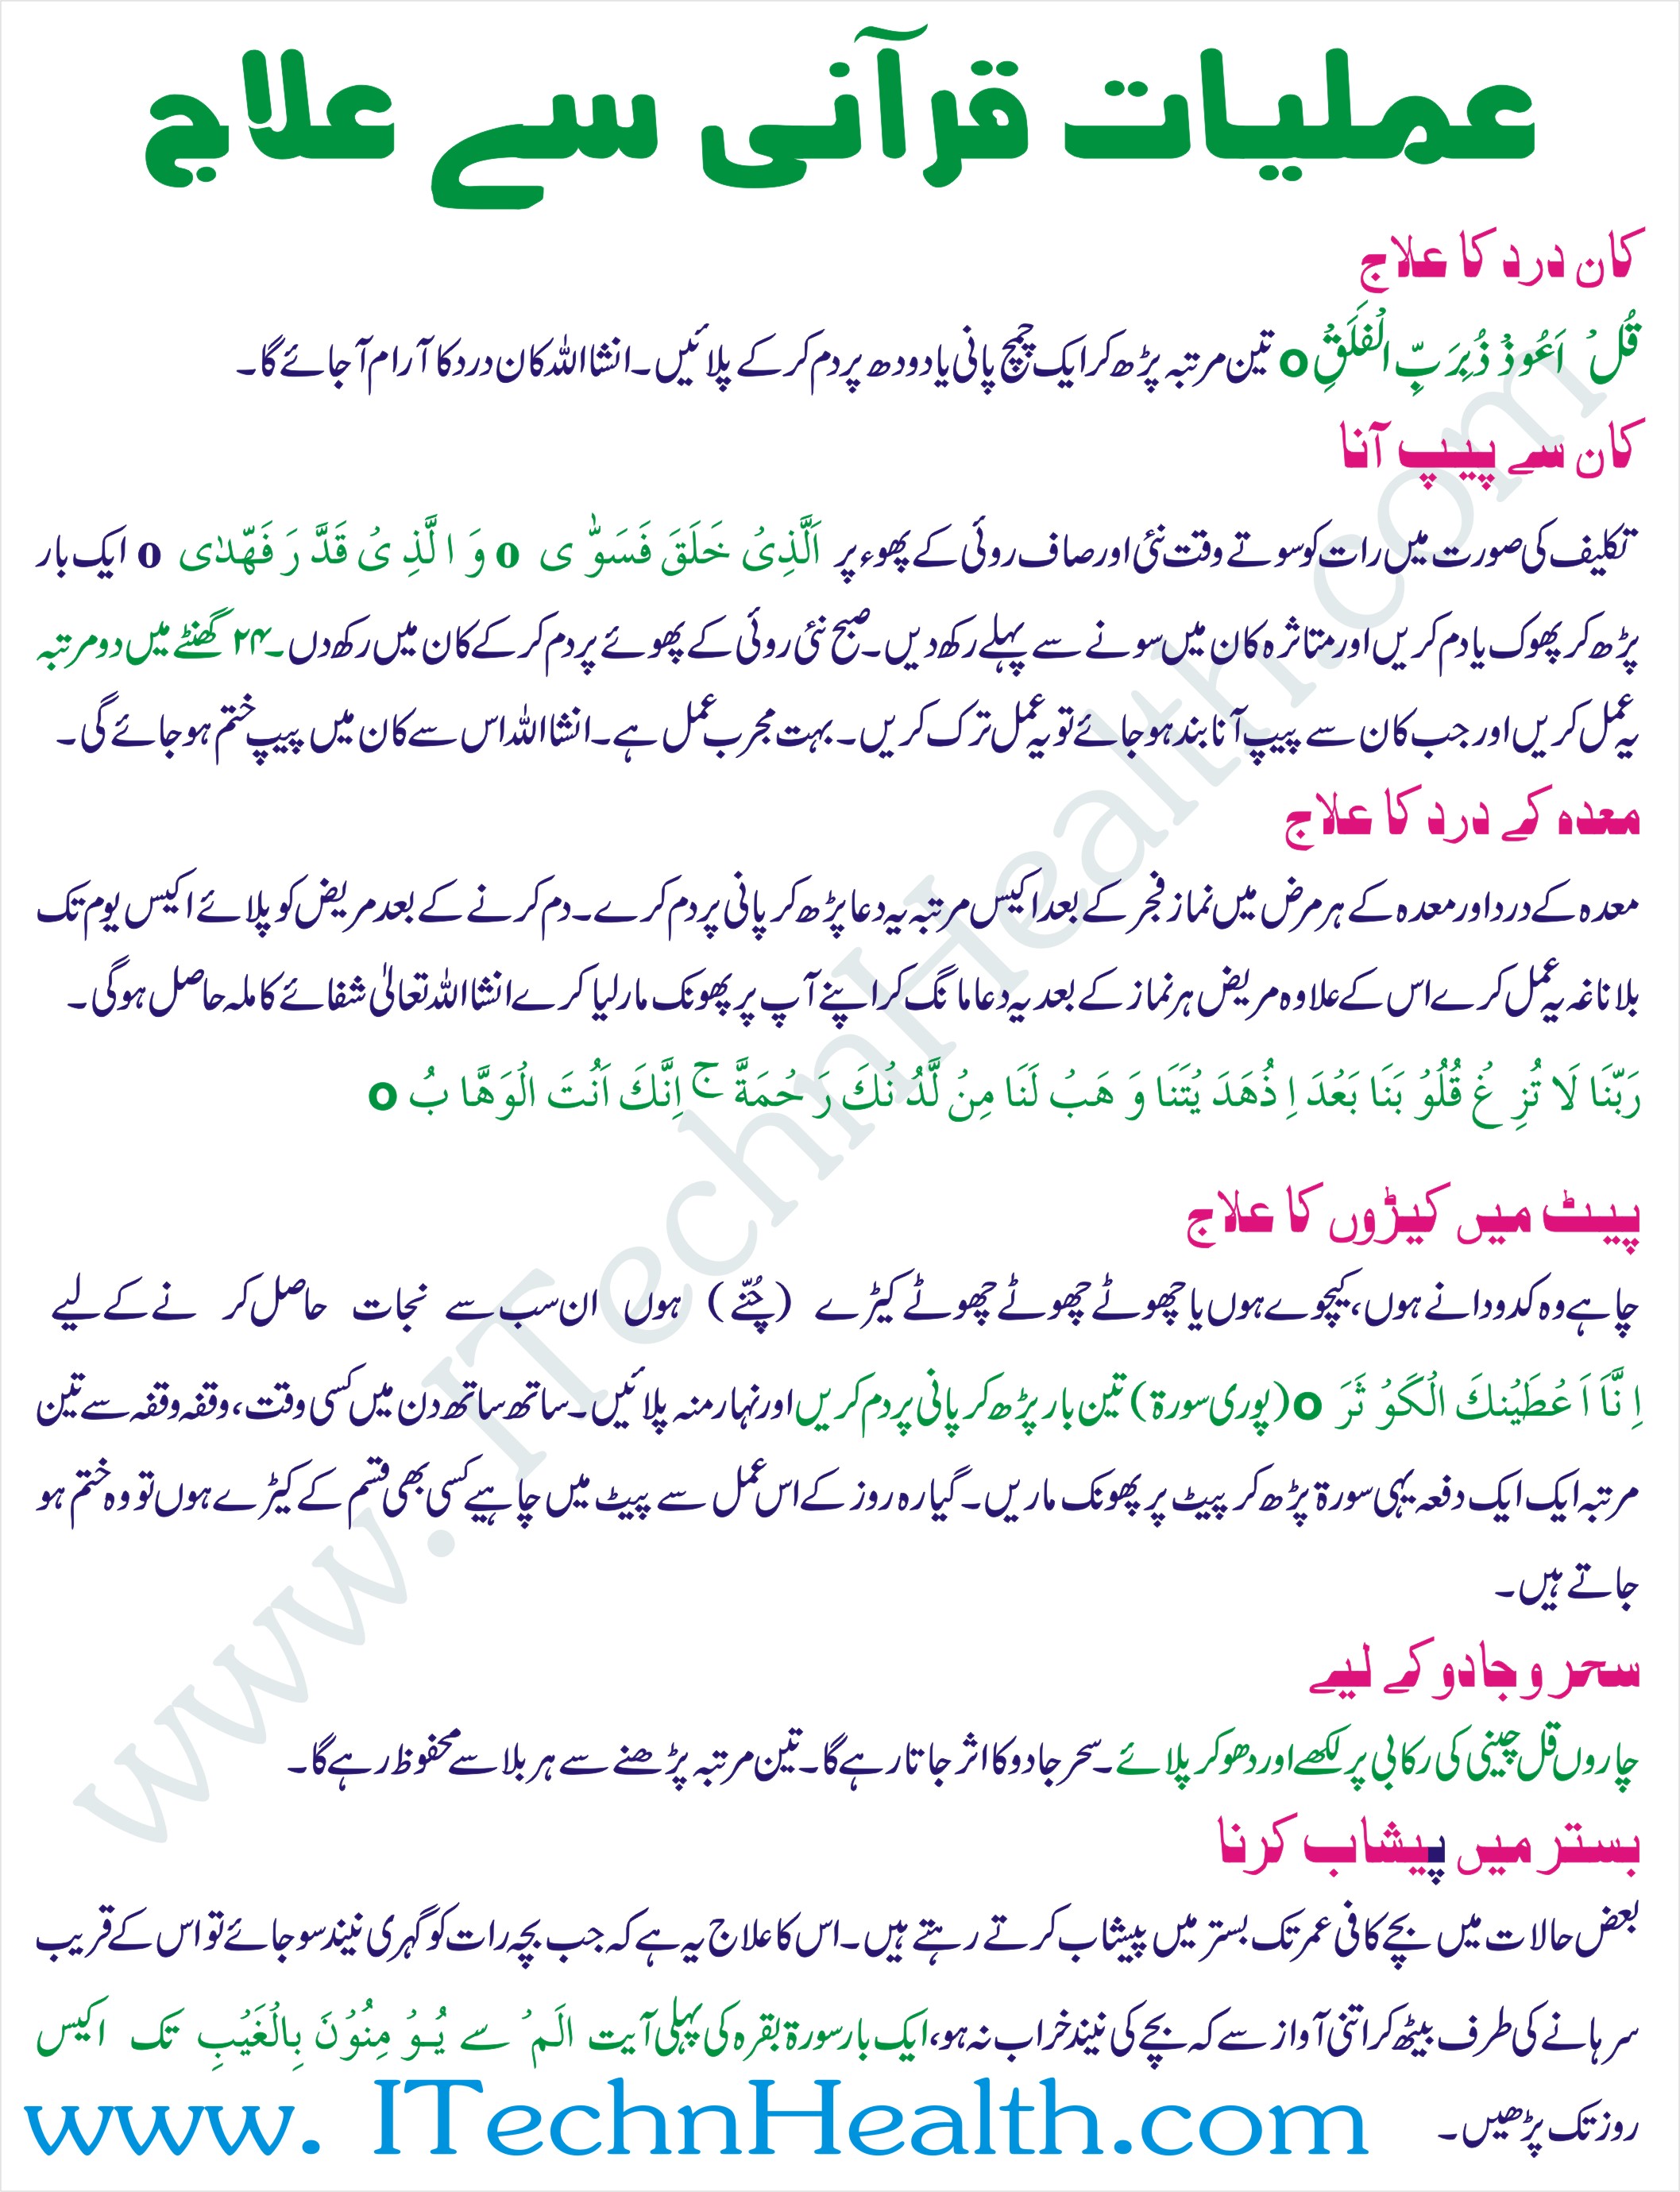 عملیات قرآنی سے علاج
کان درد کا علاج
قُلْ اَعُوْذُ بِرَبِّ الْفَلَقِ o تین مرتبہ پڑھ کر ایک چمچ پانی یا دودھ پر دم کر کے پلائیں۔ انشااللہ کان درد کا آرام آجائے گا۔
کان سے پیپ آنا
تکلیف کی صورت میں رات کو سوتے وقت نئی اور صاف روئی کے پھوء پر اَلَّذِیْ خَلَقَ فَسَوّٰی o وَ الَّذِیْ قَدَّرَ فَهَدٰی o ایک بار
پڑھ کر پھوک یا دم کریں اور متاثرہ کان میں سونے سے پہلے رکھ دیں۔ صبح نئی روئی کے پھوئے پر دم کر کے کان میں رکھ دں۔ ۲۴ گھنٹے میں دو مرتبہ
یہ عمل کریں اور جب کان سے پیپ آنا بند ہو جائے تو یہ عمل ترک کریں۔ بہت مجرب عمل ہے۔ انشااللہ اس سے کان میں پیپ ختم ہو جائے گی۔
معدہ کے درد کا علاج
معدہ کے درد اور معدہ کے ہر مرض میں نماز فجر کے بعد اکیس مرتبہ یہ دعا پڑھ کر پانی پر دم کرے۔ دم کرنے کے بعد مریض کو پلائے اکیس یوم تک
بلا ناغہ یہ عمل کرے اس کے علاوہ مریض ہر نماز کے بعد یہ دعا مانگ کر اپنے آپ پر پھونک مار لیا کرے انشااللہ تعالیٰ شفائے کاملہ حاصل ہوگی۔
رَبَّنَا لَا تُزِغْ قُلُوْبَنَا بَعْدَ اِذْهَدَيْتَنَا وَ هَبْ لَنَا مِنْ لَّدُنْكَ رَحْمَةً ج اِنَّكَ اَنْتَ الْوَهَّابُ o
پیٹ میں کیڑوں کا علاج
چاہے وہ کدو دانے ہوں، کیچوے ہوں یا چھوٹے چھوٹے کیڑے (چُنّے) ہوں ان سب سے نجات حاصل کر نے کے لیے
اِنَّاۤ اَعْطَيْنٰكَ الْكَوْثَرَ o (پوری سورۃ) تین بار پڑھ کر پانی پر دم کریں اور نہار منہ پلائیں۔ ساتھ ساتھ دن میں کسی وقت، وقفہ وقفہ سے تین
مرتبہ ایک ایک دفعہ یہی سورۃ پڑھ کر پیٹ پر پھونک ماریں۔ گیارہ روز کے اس عمل سے پیٹ میں چاہیے کسی بھی قسم کے کیڑے ہوں تو وہ ختم ہو
جاتے ہیں۔
سحر و جادو کے لیے
چاروں قل چینی کی رکابی پر لکھے اور دھو کر پلائے۔ سحر جادو کا اثر جاتا رہے گا۔ تین مرتبہ پڑھنے سے ہر بلا سے محفوظ رہے گا۔
بستر میں پیشاب کرنا
بعض حالات میں بچے کافی عمر تک بستر میں پیشاب کرتے رہتے ہیں۔ اس کا علاج یہ ہے کہ جب بچہ رات کو گہری نیند سو جائے تو اس کے قریب
سرہانے کی طرف بیٹھ کر اتنی آواز سے کہ بچے کی نیند خراب نہ ہو، ایک بار سورۃ بقرہ کی پہلی آیت الَمْ سے يُؤْمِنُوْنَ بِالْغَيْبِ تک اکیس
روز تک پڑھیں۔
www. ITechnHealth.com
www.ITechnHealth.com